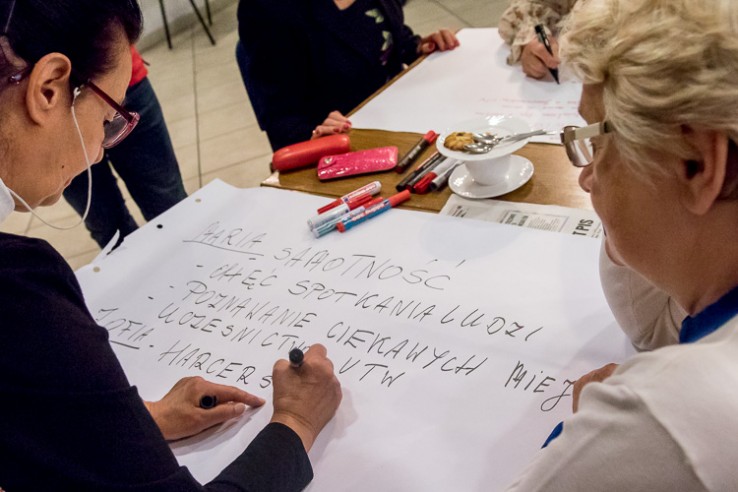 MARIA SAMOTNOŚĆ
- CHĘĆ SPOTKANIA LUDZI
- POZNAWANIE CIEKAWYCH MIEJ
- UCZESNICTWO UTW
ZOFIA - HARCERS